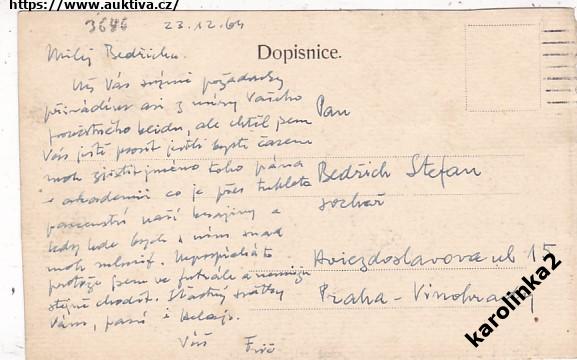 https://www.auktiva.cz/
3686
23.12.64
Dopisnice.
Milý Bedřichu.
Už Vás svými požadavky
přivádím asi z míry Vašeho
klidu, ale chtěl jsem
Vás ještě prosit jestli byste časem
mohl zjistit jméno toho pána
v akademii co je přes
naší krajiny a
kdy bych s ním snad
mohl mluvit. Nepospíchá to
protože jsem ve a nemůžu
stejně chodit. Šťastný svátky
Vám, paní i
Váš Frič
Pan
Bedřich Stefan
sochař
Hviezdoslavova ul 15
Praha - Vinohrady
karolinka2